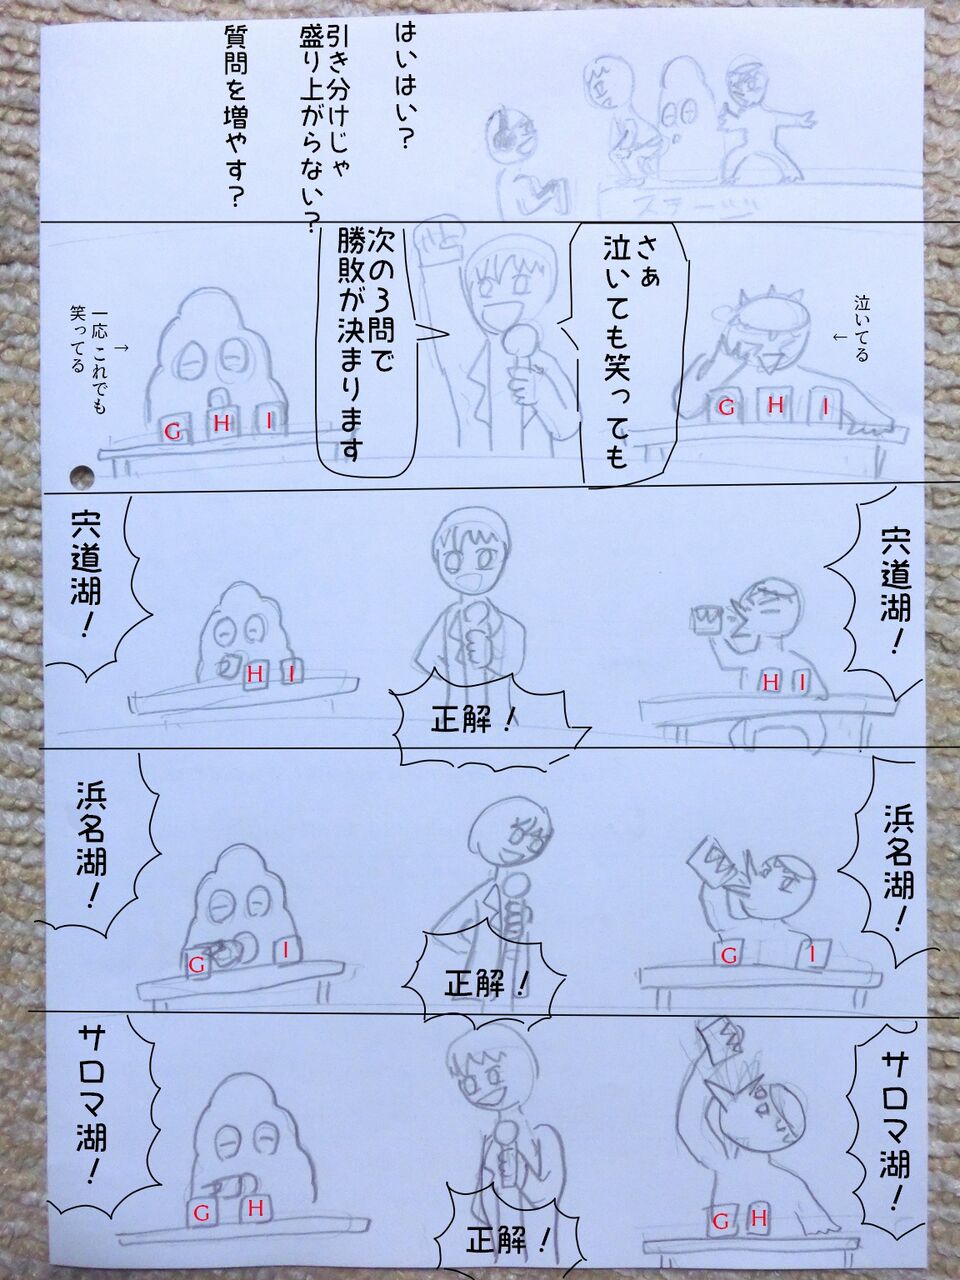 はいはい？
引き分けじゃ
盛り上がらない？
質問を増やす？
ステージ
さぁ
泣いても笑っても
次の3問で
勝敗が決まります
泣いてる
←
→
一応 これでも
笑ってる
G H I
G H I
宍道湖！
宍道湖！
H I
H I
正解！
浜名湖！
浜名湖！
G I
G I
正解！
サロマ湖！
サロマ湖！
G H
G H
正解！